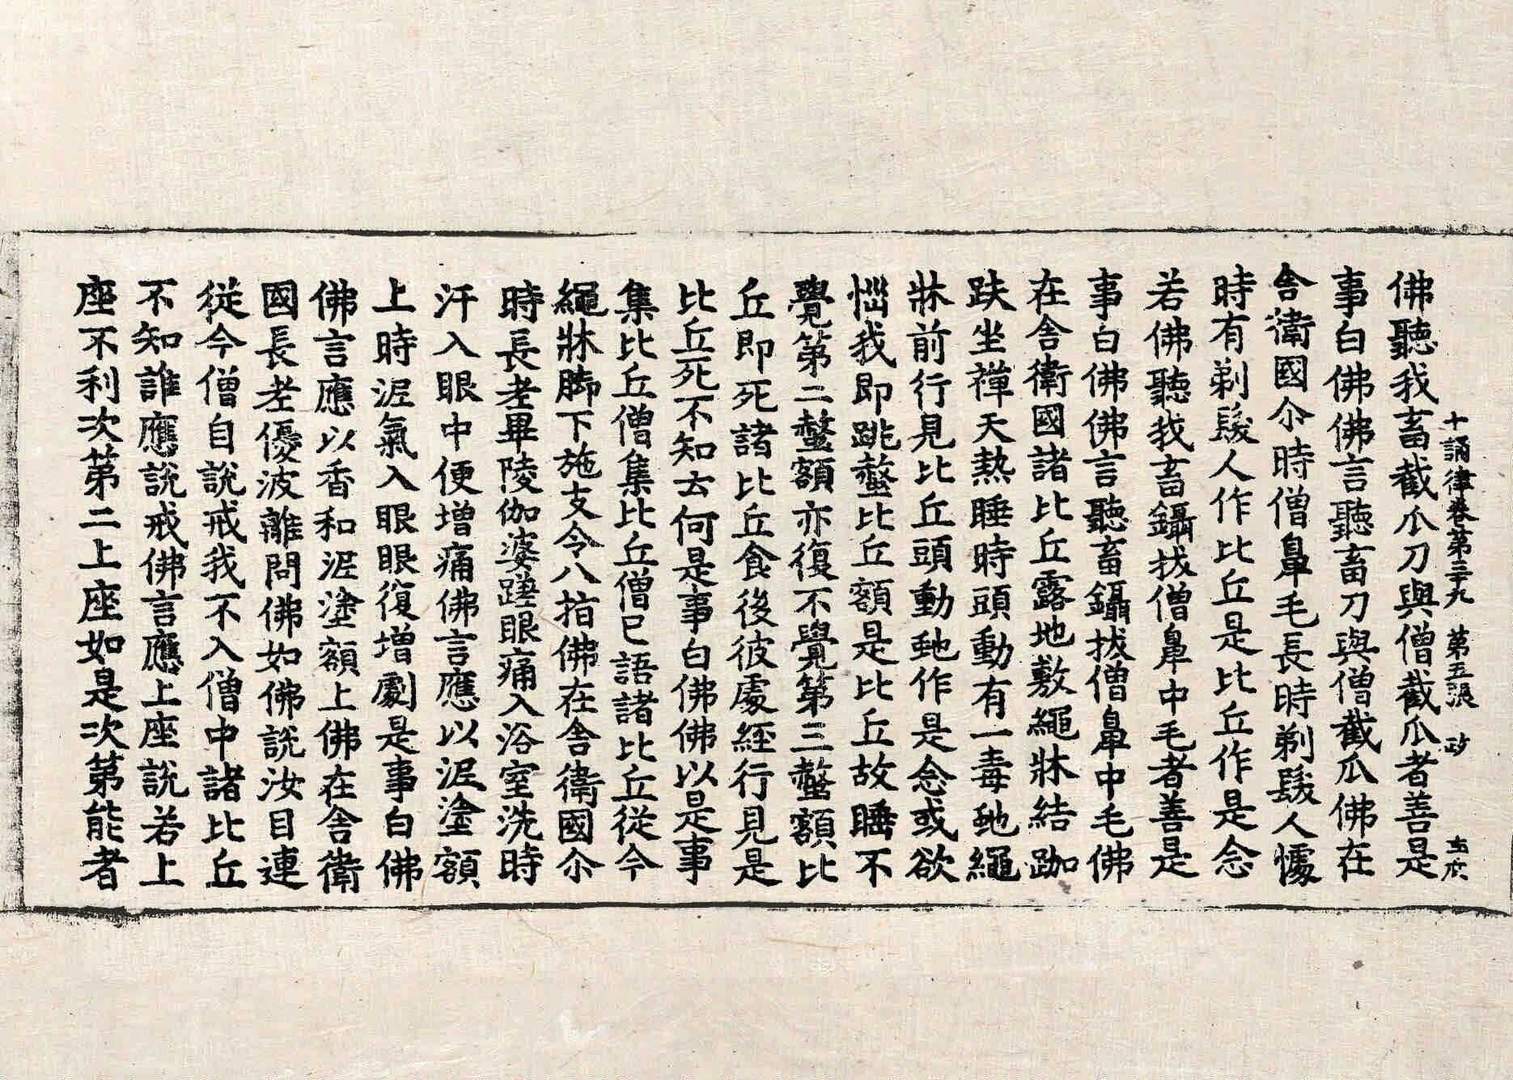 十誦律卷第三十九 第五張
佛聽我畜截爪刀與僧截爪者善是
事白佛佛言聽畜刀與僧截爪佛在
舎衛國尒時僧鼻毛長時剃髮人懅
時有剃髮人作比丘是比丘作是念
若佛聽我畜鑷拔僧鼻中毛者善是
事白佛佛言聽畜鑷拔僧鼻中毛佛
在舎衛國諸比丘露地敷繩牀結跏
趺坐禪天熱睡時頭動有一毒虵繩
牀前行見比丘頭動虵作是念或欲
惱我即跳螫比丘額是比丘故睡不
覺第二螫額亦復不覺第三螫額比
丘即死諸比丘食後彼處經行見是
比丘死不知云何是事白佛佛以是事
集比丘僧集比丘僧已語諸比丘從今
繩牀脚下施支令八指佛在舎衛國尒
時長老畢陵伽婆蹉眼痛入浴室洗時
汗入眼中便增痛佛言應以泥塗額
上時泥氣入眼眼復增劇是事白佛
佛言應以香和泥塗額上佛在舎衛
國長老優波離問佛如佛說汝目連
從今僧自說戒我不入僧中諸比丘
不知誰應說戒佛言應上座說若上
座不利次第二上座如是次第能者